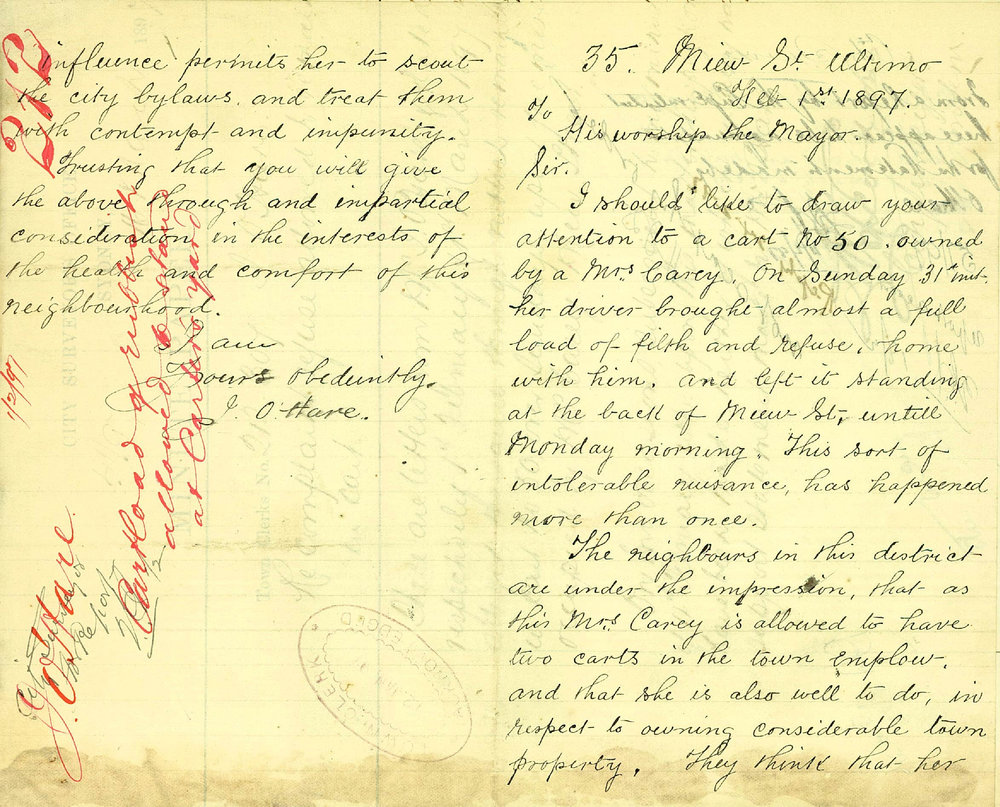 35. Miew St Ultimo
Feb 1st 1897.
To
His worship the Mayor.
Sir.
I should like to draw your
attention to a cart No 50. owned
by a Mrs Carey. On Sunday 31st inst.
her driver brought almost a full
load of filth and refuse, home
with him, and left it standing
at the back of Miew St, untill
Monday morning. This sort of
intolerable nuisance, has happened
more than once.
The neighbours in this district
are under the impression, that as
this Mrs Carey is allowed to have
two carts in the town employ,
and that she is also well to do, in
respect to owning considerable town
property. They think that her
influence permits her to scout
the city bylaws. and treat them
with contempt and impunity.
Trusting that you will give
the above through and impartial
consideration in the interests of
the health and comfort of this
neighbourhood.
I am
Yours obediently.
J. O'Hare.
1/2/97
J. O'Hare.
Cartload of rubbish
allowed to stand
at Carter's yard
City Surveyor
for Report